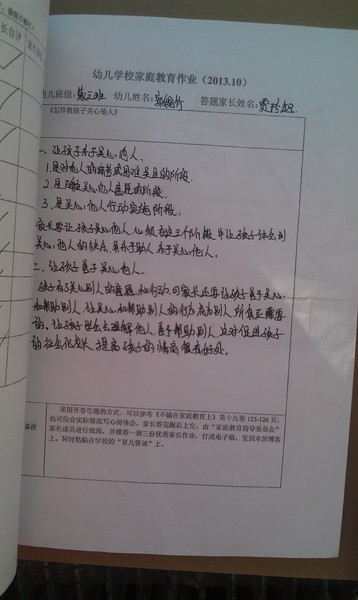 幼儿学校家庭教育作业（2013.10）
幼儿班级： 幼儿姓名： 答题家长姓名：
《怎样教孩子关心他人》
一、让孩子乐于关心他人、
1.是对他人的痛苦或困难
2.是
3.是关心他人行动实施阶段、
家长要让孩子关心他人、 在这三个阶段中让孩子体会到
关心他人的快乐、 乐于助人 乐于关心他人、
二、让孩子善于关心他人、
孩子有了关心别人的意愿和行动、 家长还要让孩子善于关心
和帮助别人、让关心和帮助别人的行为 别人所真正需要
的、让孩子学会去理解他人 善于帮助别人、这对促进孩子
的社会化成长 提高孩子的情商很有好处、
备注
采用开卷答题的方式，可以参考《不输在家庭教育上》第十九卷125-126页，
也可结合实际情况写心得体会。家长答完题后上交，由“家庭教育指导委员会”
家长成员进行批阅，并推荐一到三份优秀家长作业，打成电子稿，发到本班博客
上，同时粘贴在学校的“育儿资讯”上。